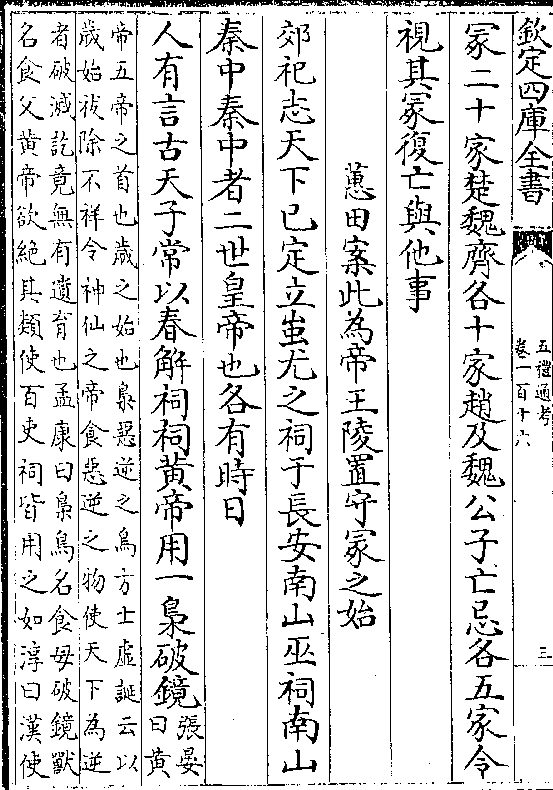 欽定四庫全書
五禮通考
卷一百十六
三
冡二十家楚魏齊各十家趙及魏公子亡忌各五家令
視其冡復亡與他事
蕙田案此為帝王陵置守冡之始
郊祀志天下已定立蚩尤之祠于長安南山巫祠南山
秦中秦中者二世皇帝也各有時日
人有言古天子常以春解祠祠黃帝用一梟破鏡張晏
曰黃
帝五帝之首也歲之始也梟惡逆之鳥方士虛誕云以
歲始祓除不祥令神仙之帝食惡逆之物使天下為逆
者破滅訖竟無有遺育也孟康曰梟鳥名食母破鏡獸
名食父黃帝欲絕其類使百吏祠皆用之如淳曰漢使